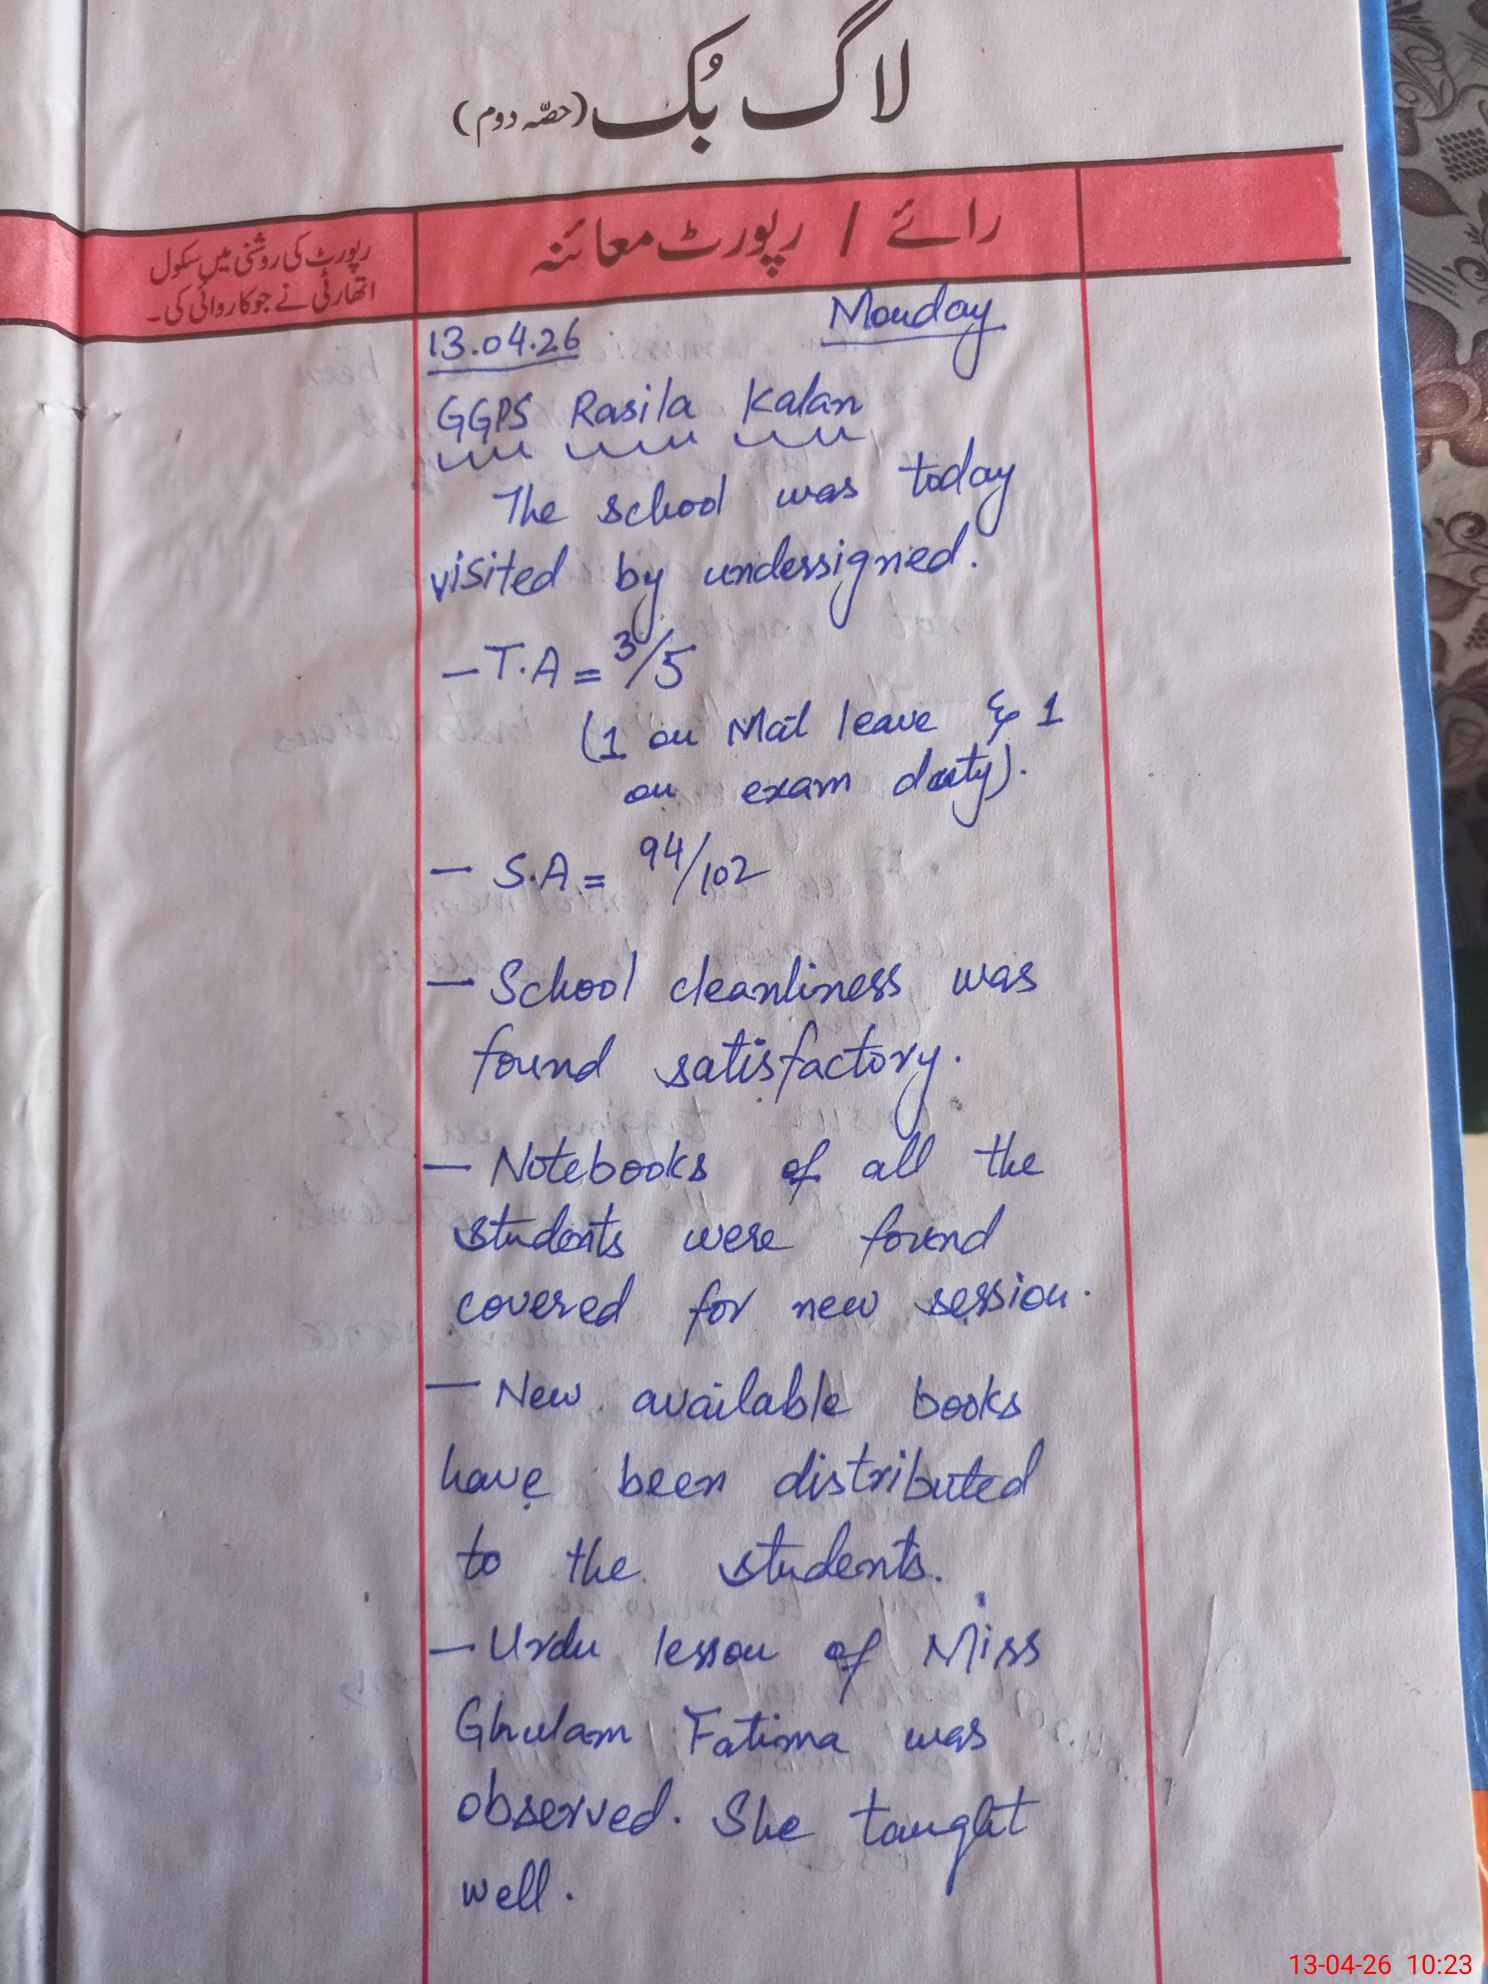 لاگ بُک (حصّہ دوم)
رائے / رپورٹ معائنہ
رپورٹ کی روشنی میں سکول
اتھارٹی نے جو کاروائی کی۔
13.04.26 Monday
GGPS Rasila Kalan
The school was today
visited by undersigned.
— T.A = 3/5
(1 on Mat leave & 1
on exam duty).
— S.A = 94/102
— School cleanliness was
found satisfactory.
— Notebooks of all the
students were found
covered for new session.
— New available books
have been distributed
to the students.
— Urdu lesson of Miss
Ghulam Fatima was
observed. She taught
well.
13-04-26 10:23